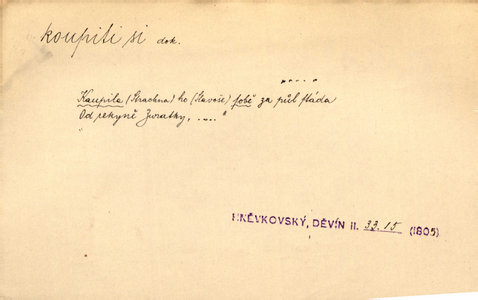 koupiti si dok.
„....
Koupila (Strachna) ho (Slavoše) sobě za půl stáda
Od rekyně Zvratky, ....“
HNĚVKOVSKÝ, DĚVÍN II. 33.15 (1805)